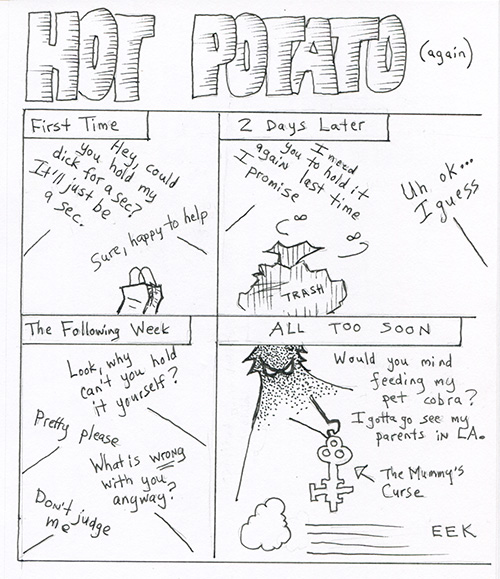 HOT POTATO (again)
First Time
Hey, could
you hold my
dick for a sec?
It'll just be
a sec.
Sure, happy to help
2 Days Later
I need
you to hold it
again last time
I promise
Uh ok...
I guess
TRASH
The Following Week
Look, why
can't you hold
it yourself?
Pretty please
What is wrong
with you
anyway?
Don't judge
me
ALL TOO SOON
Would you mind
feeding my
pet cobra?
I gotta go see my
parents in LA.
The Mummy's
Curse
EEK